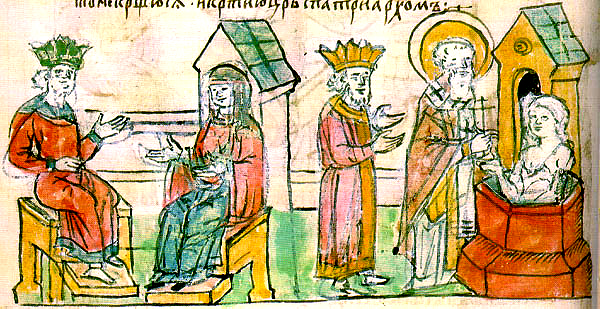 тонекрщюсѧ · икртиюцр҃ьспатриархомъ: